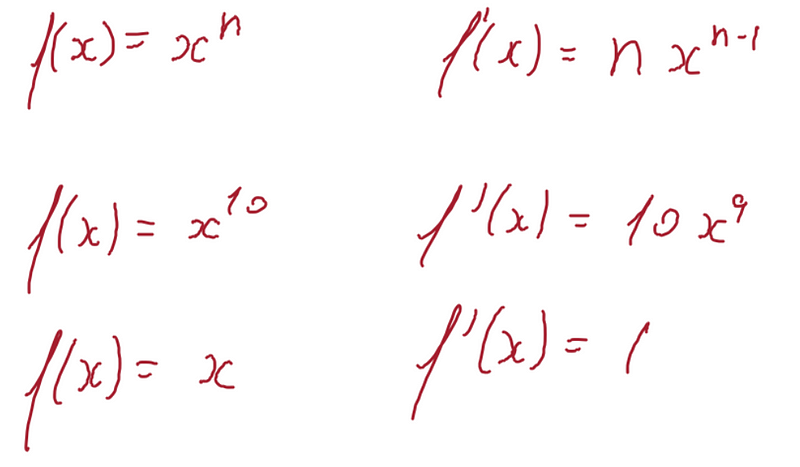 f(x) = xⁿ f'(x) = n xⁿ⁻¹
f(x) = x¹⁰ f'(x) = 10 x⁹
f(x) = x f'(x) = 1